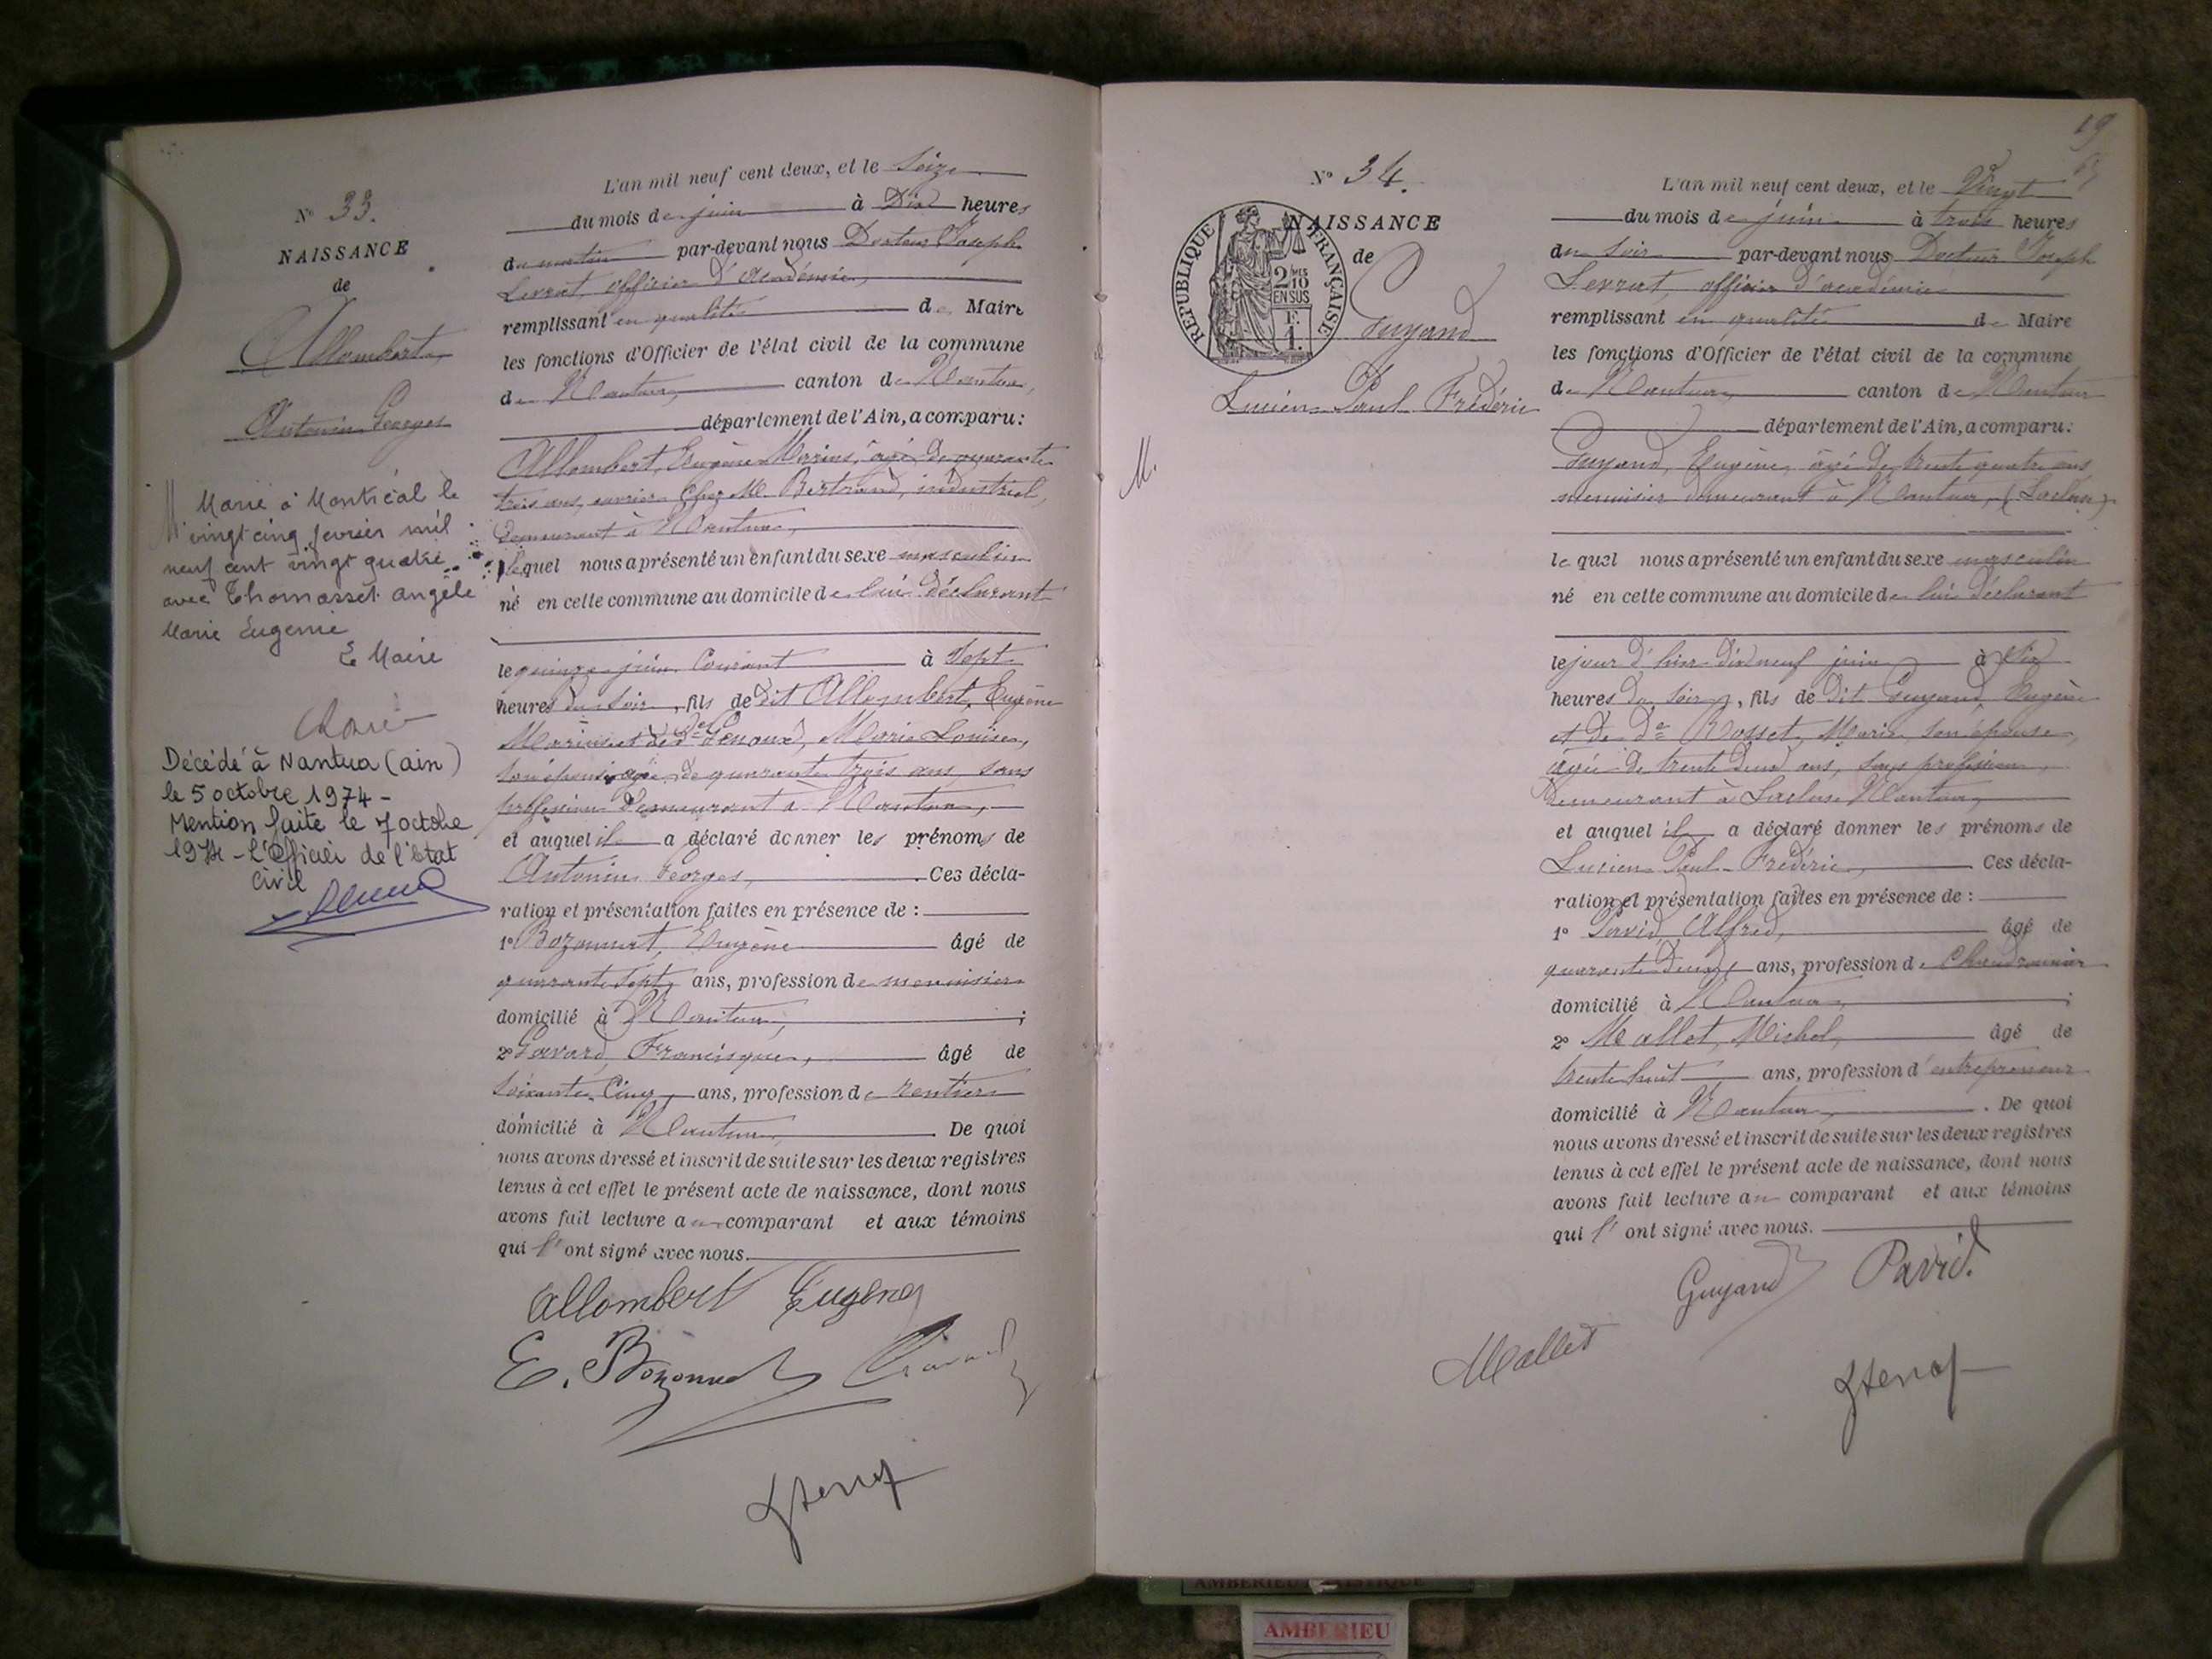 N° 33.
NAISSANCE
de
Allombert,
Antonin Georges
Marié à Montréal le
vingt cinq fevrier mil
neuf cent vingt quatre
avec Thomasset angèle
Marie Eugenie
Décédé à Nantua (ain)
le 5 octobre 1974 -
Mention faite le 7 octobre
1974 - L'Officier de l'Etat
Civil
L'an mil neuf cent deux, et le Seize
du mois de juin à Dix heures
du matin par-devant nous Docteur Joseph
Levrat, officier d'académie,
remplissant en qualité de Maire
les fonctions d'Officier de l'état civil de la commune
de Nantua, canton de Nantua,
département de l'Ain, a comparu:
Allombert, Eugène Marius, âgé de quarante
trois ans, ouvrier chez M. Bertrand, industriel,
demeurant à Nantua,
lequel nous a présenté un enfant du sexe masculin
né en cette commune au domicile de lui déclarant
le quinze juin Courant à Sept
heures du soir, fils de dit Allombert, Eugène
Marius et de de Genoux, Marie Louise,
son épouse, âgée de quarante trois ans, sans
profession demeurant à Nantua,
et auquel il a déclaré donner les prénoms de
Antonin Georges, Ces décla-
ration et présentation faites en présence de :
1° Bozonnet, Eugène âgé de
quarante sept ans, profession de menuisier
domicilié à Nantua, ;
2° Gavard, Francisque, âgé de
soixante Cinq ans, profession de rentier
domicilié à Nantua, De quoi
nous avons dressé et inscrit de suite sur les deux registres
tenus à cet effet le présent acte de naissance, dont nous
avons fait lecture au comparant et aux témoins
qui l' ont signé avec nous.
Allombert Eugène
E. Bozonnet
19
N° 34.
NAISSANCE
de
RÉPUBLIQUE FRANÇAISE
2/10
EN SUS
F.
1.
Guyand
Lucien Paul Frédéric
M.
L'an mil neuf cent deux, et le Vingt
du mois de juin à trois heures
du soir par-devant nous Docteur Joseph
Levrat, officier d'académie
remplissant en qualité de Maire
les fonctions d'Officier de l'état civil de la commune
de Nantua, canton de Nantua
département de l'Ain, a comparu:
Guyand, Eugène, âgé de trente quatre ans
menuisier demeurant à Nantua, (Lacluse)
le quel nous a présenté un enfant du sexe masculin
né en cette commune au domicile de lui déclarant
le jour d'hier dix neuf juin à Six
heures du soir, fils de dit Guyand, Eugène
et de de Rosset, Marie, son épouse,
âgée de trente deux ans, sans profession,
demeurant à Lacluse Nantua,
et auquel il a déclaré donner les prénoms de
Lucien Paul Frédéric, Ces décla-
ration et présentation faites en présence de :
1° Pavid, Alfred, âgé de
quarante deux ans, profession de Chaudronnier
domicilié à Nantua, ;
2° Mallet, Michel, âgé de
trente huit ans, profession d'entrepreneur
domicilié à Nantua, . De quoi
nous avons dressé et inscrit de suite sur les deux registres
tenus à cet effet le présent acte de naissance, dont nous
avons fait lecture au comparant et aux témoins
qui l' ont signé avec nous.
Guyand Pavid.
Mallet
AMBERIEU